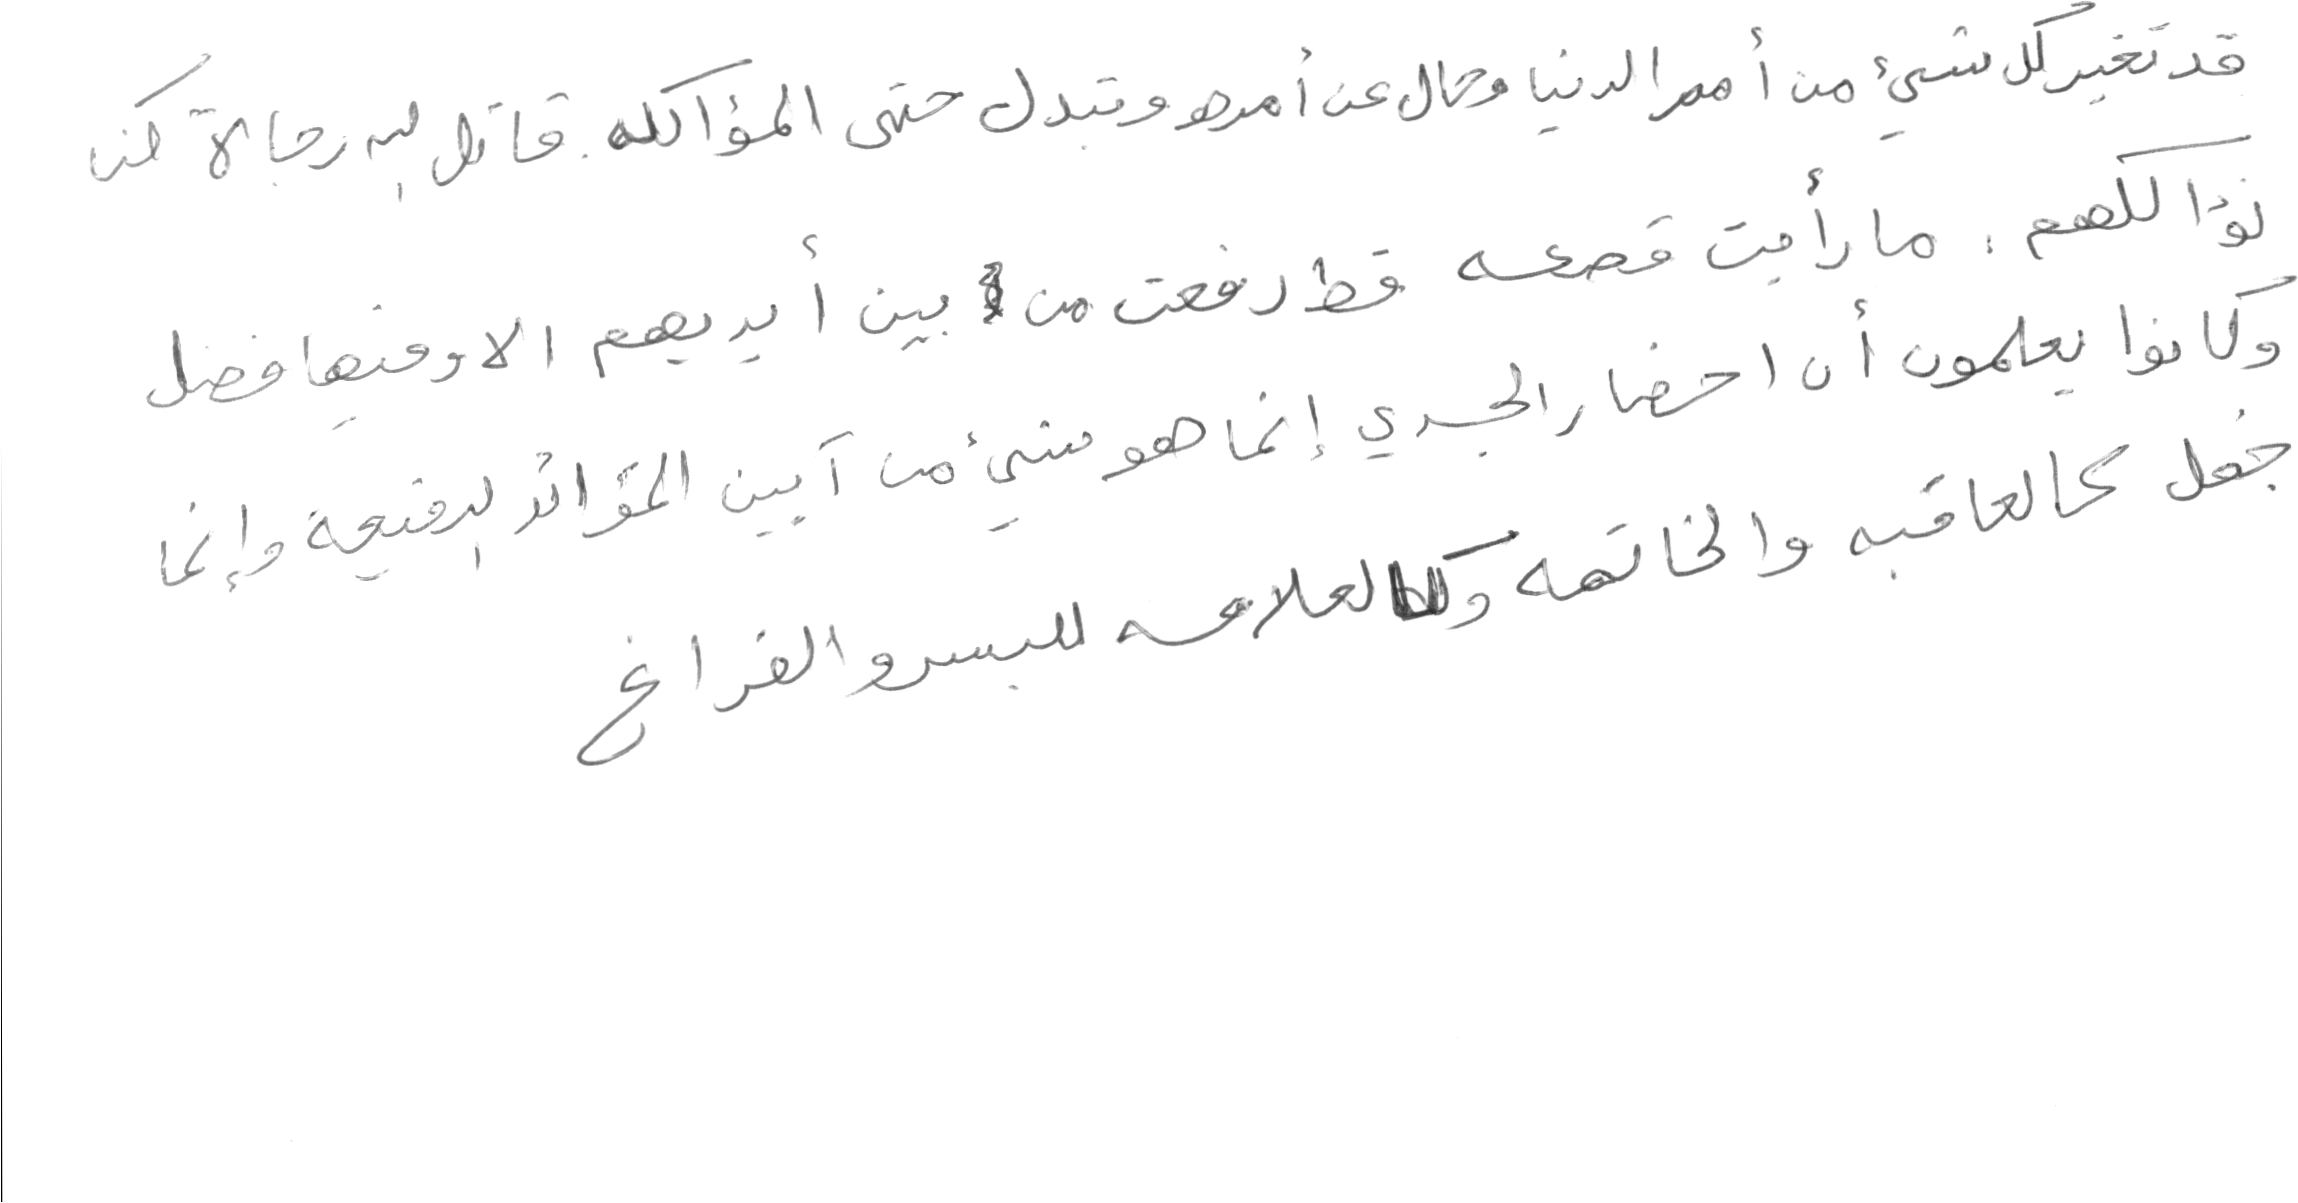 قد تغير كل شيئ من أمر الدنيا وحال عن أمره وتبدل حتى المؤاكله. قاتل الله رجالا كنا
نؤاكلهم، ما رأيت قصعه قط رفعت من بين أيديهم الا وفيها فضل
وكانوا يعلمون أن احضار الجدي إنما هو شيئ من آيين الموائد الرفيعة وإنما
جعل كالعاقبه والخاتمه وكالعلامه لليسر والفراغ